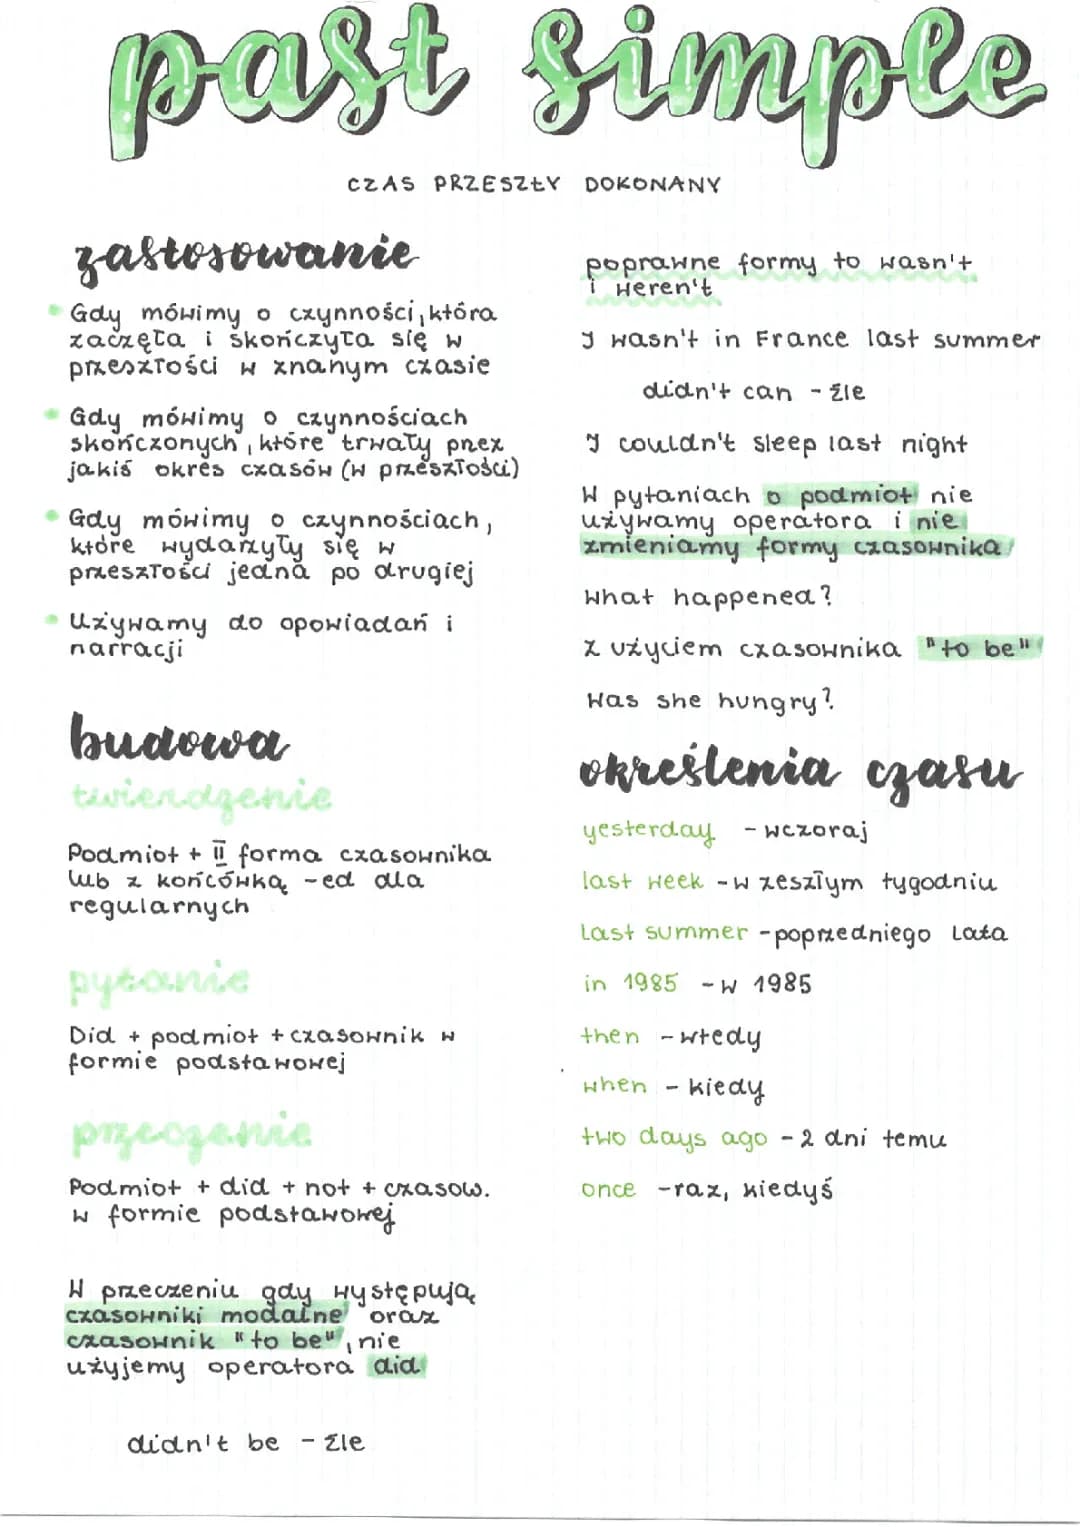 past simple
CZAS PRZESZŁY DOKONANY
zastosowanie
Gdy mówimy o czynności, która
zaczęła i skończyła się w
przeszłości w znanym czasie
Gdy mówimy o czynnościach
skończonych, które trwały przez
jakiś okres czasów (w przeszłości)
Gdy mówimy o czynnościach,
które wydarzyły się w
przeszłości jedna po drugiej
Używamy do opowiadań i
narracji
budowa
twierdzenie
Podmiot + II forma czasownika
lub z końcówką -ed dla
regularnych
pytanie
Did + podmiot + czasownik w
formie podstawowej
przeczenie
Podmiot + did + not + czasow.
w formie podstawowej
W przeczeniu gdy występują
czasowniki modalne oraz
czasownik "to be", nie
użyjemy operatora did
didn't be - źle
poprawne formy to wasn't
i weren't
I wasn't in France last summer
didn't can - źle
I couldn't sleep last night
W pytaniach o podmiot nie
używamy operatora i nie
zmieniamy formy czasownika
What happened?
Z użyciem czasownika "to be"
Was she hungry?
określenia czasu
yesterday - wczoraj
last week - w zeszłym tygodniu
Last summer - poprzedniego lata
in 1985 - w 1985
then - wtedy
when - kiedy
two days ago - 2 dni temu
once - raz, kiedyś